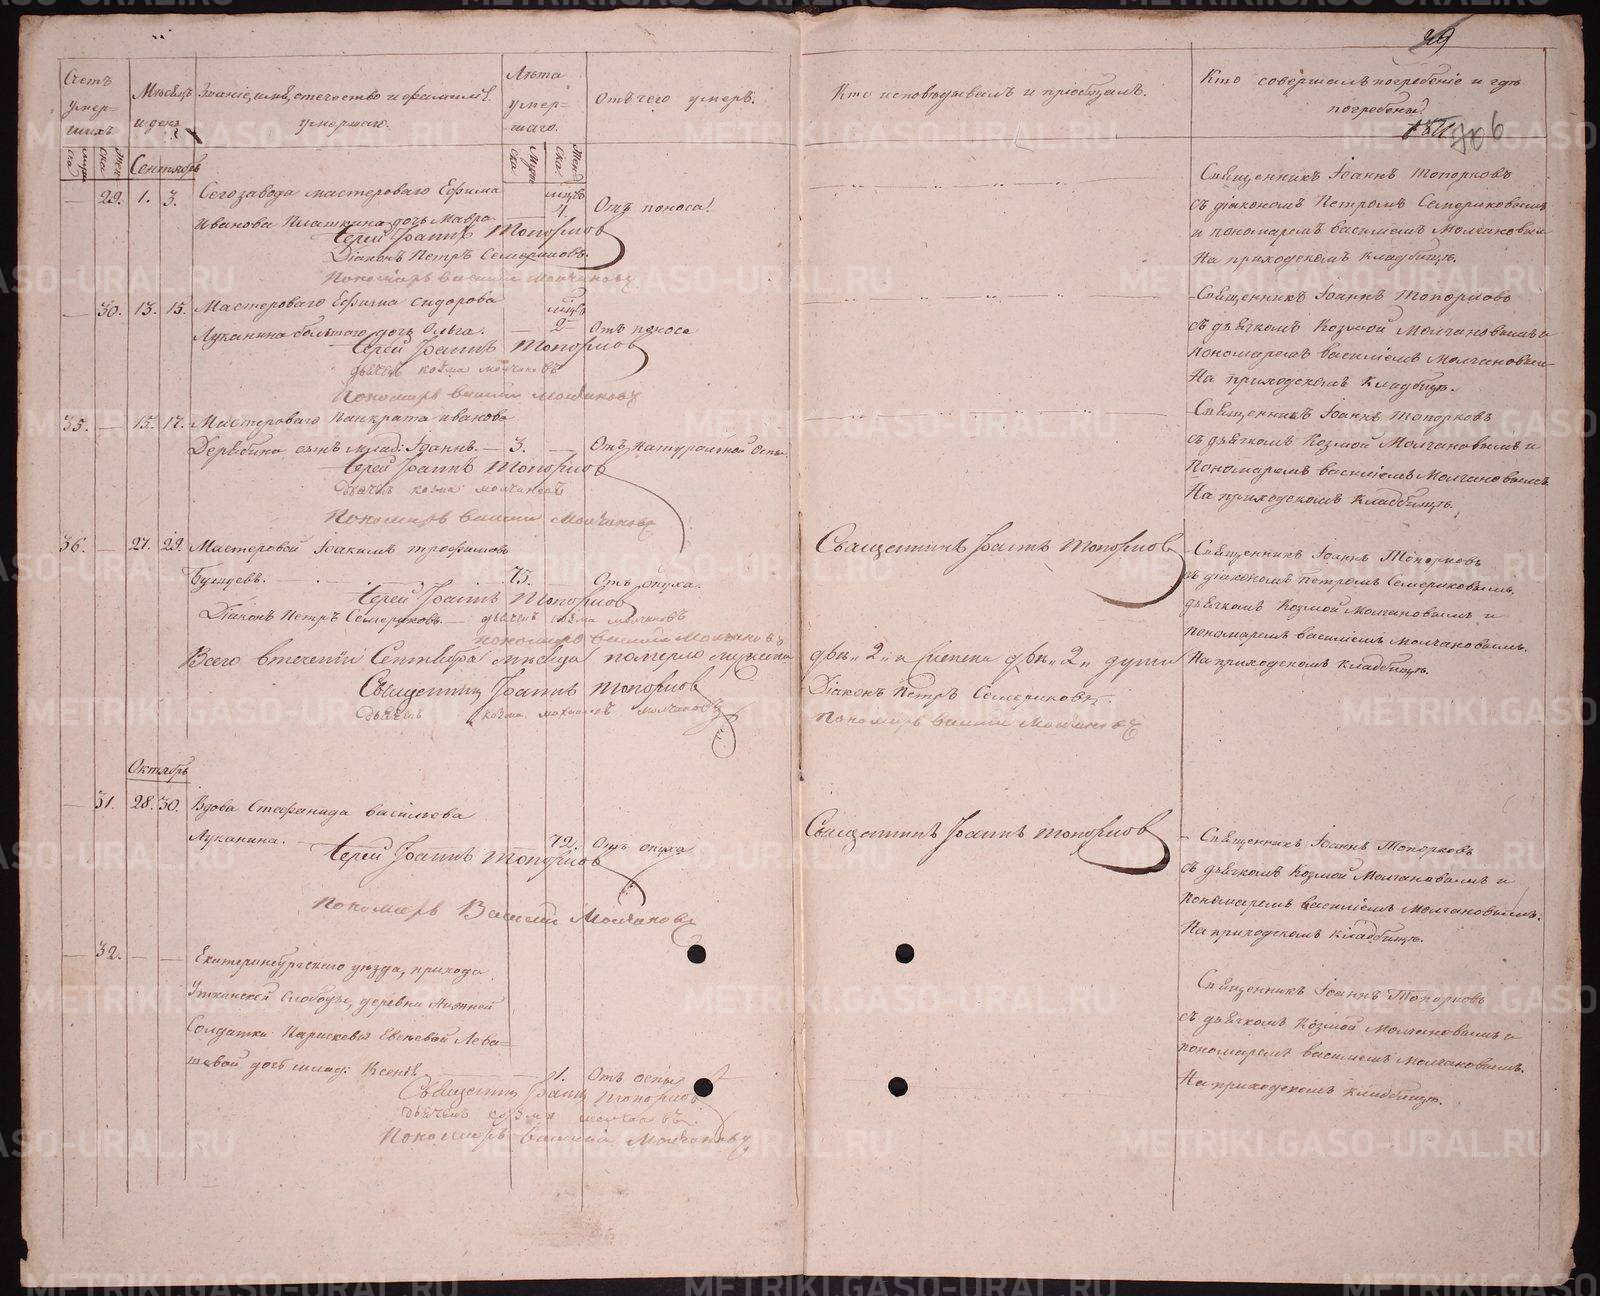 Счетъ умер-
шихъ
Мѣсяцъ
и день
Званіе, имя, отечество и фамилія
умершаго.
Лѣта
умер-
шаго.
Отъ чего умеръ.
Муже
ска
Жен
ска
Муж
ска
Жен
ска
Сентябрь
29. 1. 3. Сего завода мастероваго Ефима мцъ 4.
Иванова Платкина дочь Мавра. Отъ поноса.
Іерей Іоаннъ Топорковъ
Діаконъ Петръ Семериковъ.
Пономарь Василій Молчановъ
30. 13. 15. Мастероваго Ефима Сидорова мцъ 2
Луканина большаго дочь Ольга. Отъ поноса
Іерей Іоаннъ Топорковъ
дьячекъ Козма Молчановъ
Пономарь Василій Молчановъ
35. 15. 17. Мастероваго Панкрата Иванова
сынъ млад: Іоаннъ. 3. Отъ натуральной оспы.
Іерей Іоаннъ Топорковъ
дьячекъ Козма Молчановъ
Пономарь Василій Молчановъ
36. 27. 29. Мастеровой Іоакимъ Трофимовъ
75. Отъ опуха.
Іерей Іоаннъ Топорковъ
Діаконъ Петръ Семериковъ. дьячекъ Козма Молчановъ
пономарь Василій Молчановъ
Всего втеченіи Сентября мѣсяца померло мужеска
Священникъ Іоаннъ Топорковъ
дьячекъ Козма Молчановъ
Октябрь
31. 28. 30. Вдова Стефанида Васильева
Луканина. 72. Отъ опуха
Іерей Іоаннъ Топорковъ
Пономарь Василій Молчановъ
32. Екатеринбургскаго уѣзда, прихода
Уткинской Слободы, деревни Нижней
Солдатки Парасковьи Евсѣевой Лева-
шевой дочь млад: Ксенія 1. Отъ оспы
Священникъ Іоаннъ Топорковъ
дьячекъ Козма Молчановъ.
Пономарь Василій Молчановъ
Кто исповѣдывалъ и пріобщалъ.
Священникъ Іоаннъ Топорковъ
двѣ „2„ и женска двѣ „2„ души
Діаконъ Петръ Семериковъ.
пономарь Василій Молчановъ
Священникъ Іоаннъ Топорковъ
Кто совершалъ погребеніе и гдѣ
погребены.
Священникъ Іоаннъ Топорковъ
съ діакономъ Петромъ Семериковымъ
и пономаремъ Василіемъ Молчановымъ
На приходскомъ кладбищѣ.
Священникъ Іоаннъ Топорковъ
съ дьячкомъ Козмой Молчановымъ и
пономаремъ Василіемъ Молчановымъ
На приходскомъ кладбищѣ.
Священникъ Іоаннъ Топорковъ
съ дьячкомъ Козмой Молчановымъ и
пономаремъ Василіемъ Молчановымъ.
На приходскомъ кладбищѣ.
Священникъ Іоаннъ Топорковъ
съ діакономъ Петромъ Семериковымъ,
дьячкомъ Козмой Молчановымъ и
пономаремъ Василіемъ Молчановымъ.
На приходскомъ кладбищѣ.
Священникъ Іоаннъ Топорковъ
съ дьячкомъ Козмой Молчановымъ и
пономаремъ Василіемъ Молчановымъ.
На приходскомъ кладбищѣ.
Священникъ Іоаннъ Топорковъ
съ дьячкомъ Козмой Молчановымъ и
пономаремъ Василіемъ Молчановымъ.
На приходскомъ кладбищѣ.
METRIKI.GASO-URAL.RU